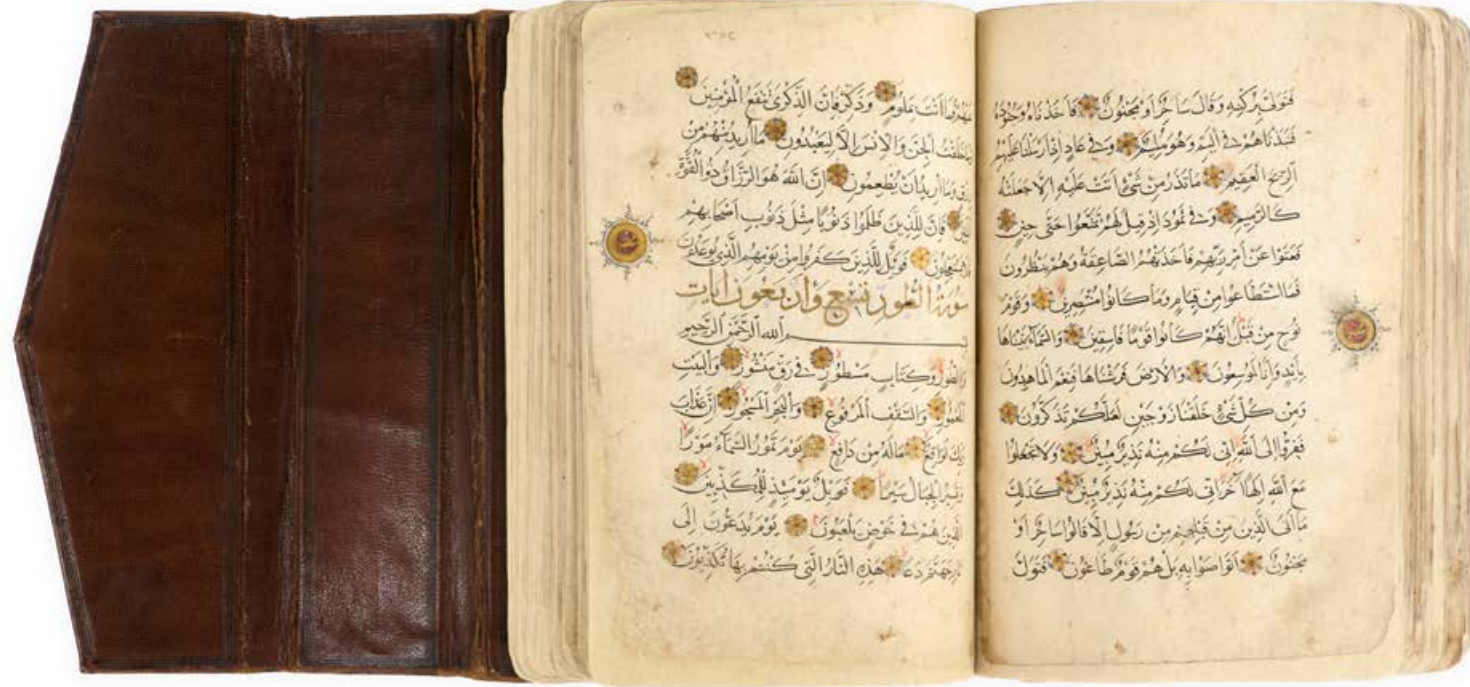 فَتَوَلَّى بِرُكْنِهِ وَقَالَ سَاحِرٌ أَوْ مَجْنُونٌ فَأَخَذْنَاهُ وَجُنُودَهُ
فَنَبَذْنَاهُمْ فِي الْيَمِّ وَهُوَ مُلِيمٌ وَفِي عَادٍ إِذْ أَرْسَلْنَا عَلَيْهِمُ
الرِّيحَ الْعَقِيمَ مَا تَذَرُ مِنْ شَيْءٍ أَتَتْ عَلَيْهِ إِلَّا جَعَلَتْهُ
كَالرَّمِيمِ وَفِي ثَمُودَ إِذْ قِيلَ لَهُمْ تَمَتَّعُوا حَتَّى حِينٍ
فَعَتَوْا عَنْ أَمْرِ رَبِّهِمْ فَأَخَذَتْهُمُ الصَّاعِقَةُ وَهُمْ يَنْظُرُونَ
فَمَا اسْتَطَاعُوا مِنْ قِيَامٍ وَمَا كَانُوا مُنْتَصِرِينَ وَقَوْمَ
نُوحٍ مِنْ قَبْلُ إِنَّهُمْ كَانُوا قَوْمًا فَاسِقِينَ وَالسَّمَاءَ بَنَيْنَاهَا
بِأَيْدٍ وَإِنَّا لَمُوسِعُونَ وَالْأَرْضَ فَرَشْنَاهَا فَنِعْمَ الْمَاهِدُونَ
وَمِنْ كُلِّ شَيْءٍ خَلَقْنَا زَوْجَيْنِ لَعَلَّكُمْ تَذَكَّرُونَ
فَفِرُّوا إِلَى اللَّهِ إِنِّي لَكُمْ مِنْهُ نَذِيرٌ مُبِينٌ وَلَا تَجْعَلُوا
مَعَ اللَّهِ إِلَهًا آخَرَ إِنِّي لَكُمْ مِنْهُ نَذِيرٌ مُبِينٌ كَذَلِكَ
مَا أَتَى الَّذِينَ مِنْ قَبْلِهِمْ مِنْ رَسُولٍ إِلَّا قَالُوا سَاحِرٌ أَوْ
مَجْنُونٌ أَتَوَاصَوْا بِهِ بَلْ هُمْ قَوْمٌ طَاغُونَ فَتَوَلَّ
عَنْهُمْ فَمَا أَنْتَ بِمَلُومٍ وَذَكِّرْ فَإِنَّ الذِّكْرَى تَنْفَعُ الْمُؤْمِنِينَ
وَمَا خَلَقْتُ الْجِنَّ وَالْإِنْسَ إِلَّا لِيَعْبُدُونِ مَا أُرِيدُ مِنْهُمْ مِنْ
رِزْقٍ وَمَا أُرِيدُ أَنْ يُطْعِمُونِ إِنَّ اللَّهَ هُوَ الرَّزَّاقُ ذُو الْقُوَّةِ
الْمَتِينُ فَإِنَّ لِلَّذِينَ ظَلَمُوا ذَنُوبًا مِثْلَ ذَنُوبِ أَصْحَابِهِمْ
فَلَا يَسْتَعْجِلُونِ فَوَيْلٌ لِلَّذِينَ كَفَرُوا مِنْ يَوْمِهِمُ الَّذِي يُوعَدُونَ
سورة الطور تسع وأربعون آيات
بسم الله الرَّحْمَنِ الرَّحِيمِ
وَالطُّورِ وَكِتَابٍ مَسْطُورٍ فِي رَقٍّ مَنْشُورٍ وَالْبَيْتِ
الْمَعْمُورِ وَالسَّقْفِ الْمَرْفُوعِ وَالْبَحْرِ الْمَسْجُورِ إِنَّ عَذَابَ
رَبِّكَ لَوَاقِعٌ مَا لَهُ مِنْ دَافِعٍ يَوْمَ تَمُورُ السَّمَاءُ مَوْرًا
وَتَسِيرُ الْجِبَالُ سَيْرًا فَوَيْلٌ يَوْمَئِذٍ لِلْمُكَذِّبِينَ
الَّذِينَ هُمْ فِي خَوْضٍ يَلْعَبُونَ يَوْمَ يُدَعُّونَ إِلَى
نَارِ جَهَنَّمَ دَعًّا هَذِهِ النَّارُ الَّتِي كُنْتُمْ بِهَا تُكَذِّبُونَ